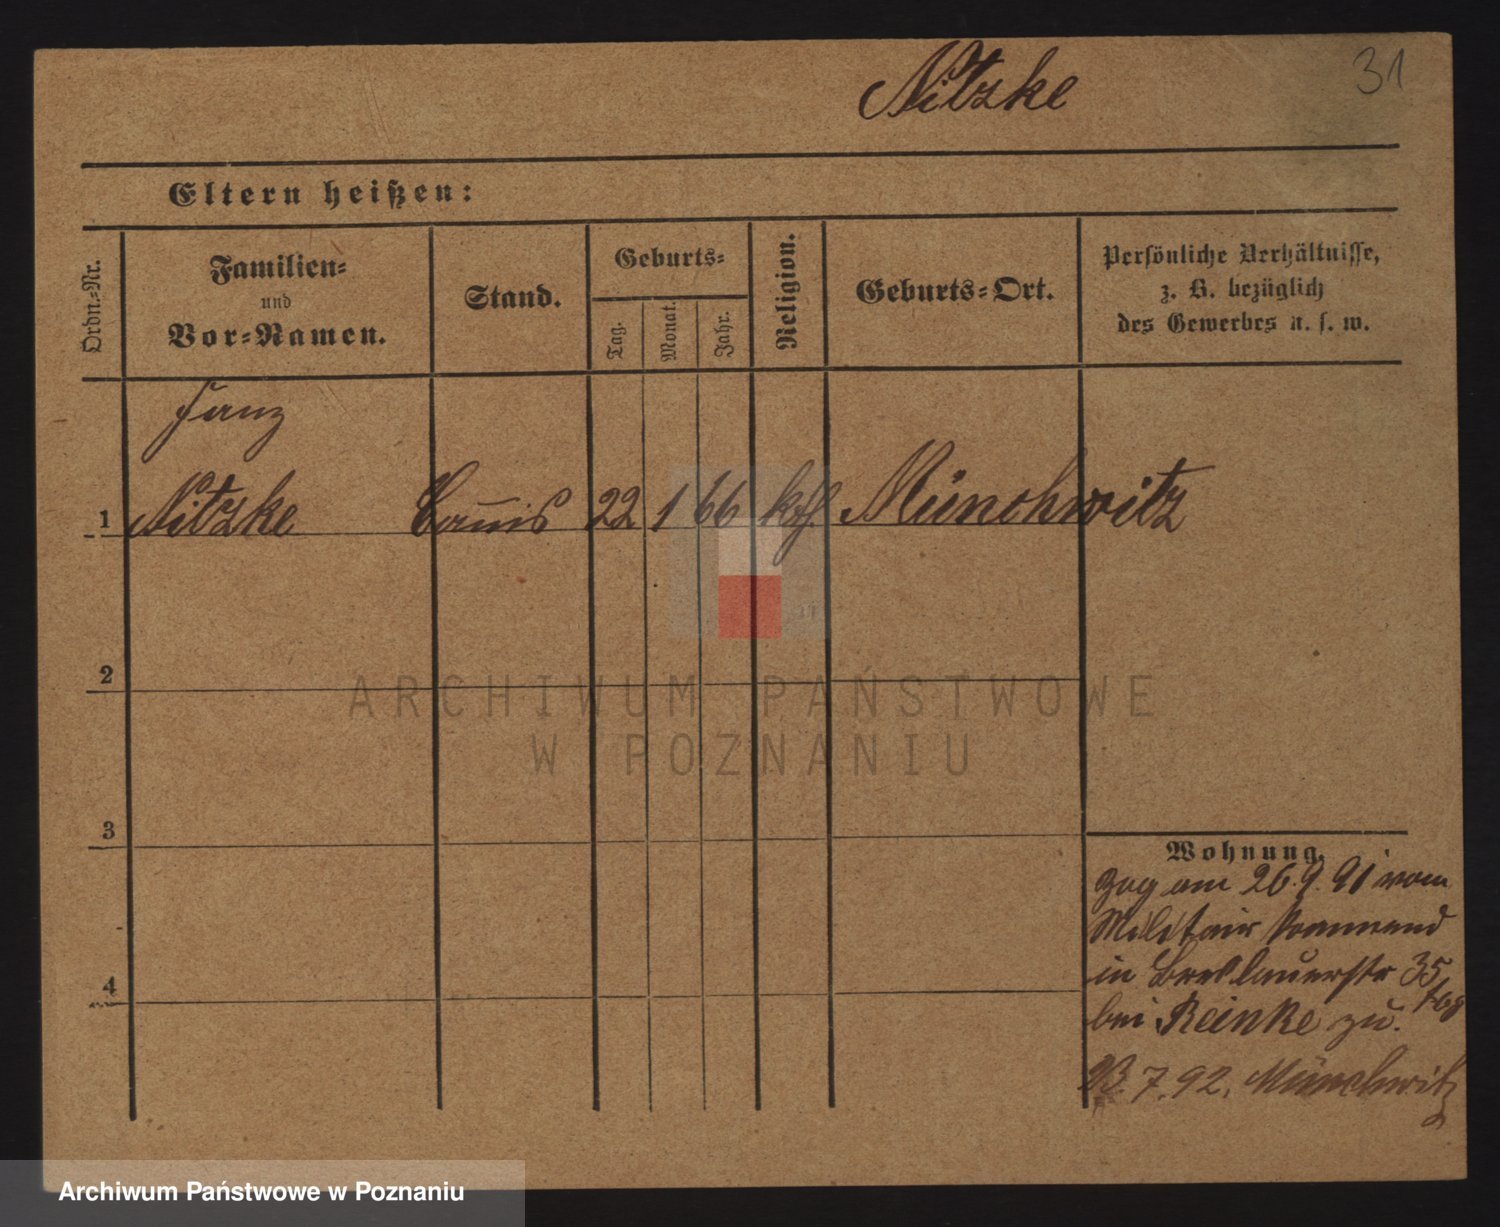 Nitzke
31
Eltern heißen:
Ordn.-Nr.
Familien-
und
Vor-Namen.
Stand.
Geburts-
Tag.
Monat.
Jahr.
Religion.
Geburts-Ort.
Persönliche Verhältnisse,
z. B. bezüglich
des Gewerbes u. s. w.
1
Nitzke
22
1
66
kth.
Münchwitz
2
3
4
Wohnung.
Zog am 26.9.91 vom
Militair kommend
in Breslauerstr 35
bei Reinke zu.
23.7.92. Münchwitz
ARCHIWUM PAŃSTWOWE
W POZNANIU
Archiwum Państwowe w Poznaniu